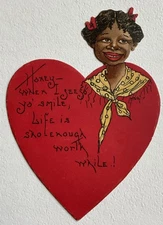 Honey—
When I sees
yo' smile,
Life is
sho' enough
worth
while!